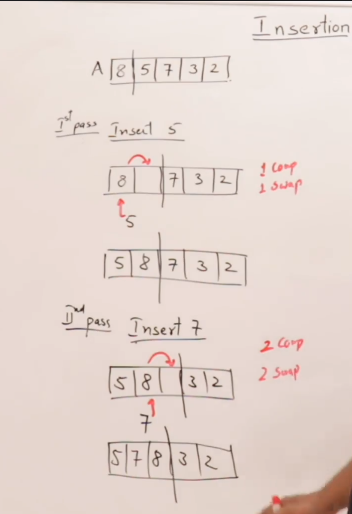 Insertion
A 8 5 7 3 2
Ist pass Insert 5
8 7 3 2
1 Comp
1 Swap
5
5 8 7 3 2
IInd pass Insert 7
2 Comp
5 8 3 2
2 Swap
7
5 7 8 3 2